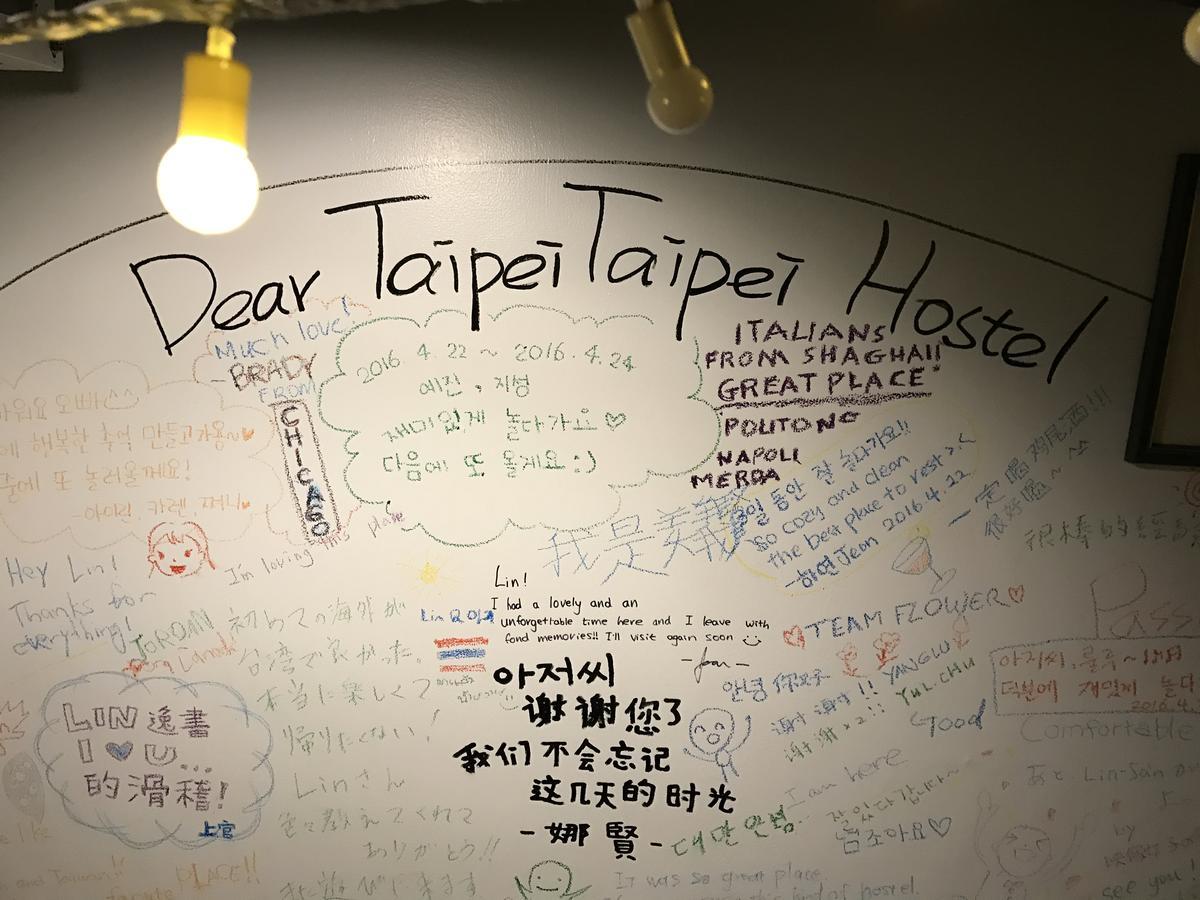 Dear Taipei Taipei Hostel
Much love!
- BRADY
FROM
CHICAGO
2016 4.22 ~ 2016.4.24
예진, 지성
재미있게 놀다가요♡
다음에 또 올게요 :)
ITALIANS
FROM SHAGHAI!
GREAT PLACE
POLITONG
NAPOLI
MERDA
오빠
에 행복한 추억 만들고가용~♥
또 놀러올께요!
I'm loving this place
我是義
3일 동안 잘 놀다가요!!
So cozy and clean
the best place to rest >.<
-하연 Jeon 2016.4.22
一定喝鸡尾酒!!!
很好喝~
很棒的經
Hey Lin!
Thanks for
everything!
JORDAN
初めての海外が
台湾で良かった。
本当に楽しくて
帰りたくない!
Linさん
色々教えてくれて
ありがとう!!
また遊びに来ます
Lin!
I had a lovely and an
unforgettable time here and I leave with
fond memories!! I'll visit again soon
아저씨
谢谢您了
我们不会忘记
这几天的时光
- 娜 賢 -
TEAM FLOWER♡
안녕 你好
谢谢!! YANGWU
谢谢x2!! YUL.CHU
Good
Pass
아저씨,
덕분에 재밌게 놀다
2016.4.
Comfortable
LIN 逸書
I ♥ U...
的滑稽!
上官
I am here
잘있다갑니다~
넘조아요♡
대만 안녕..
あと Lin-San
by
see you!
and Taiwan!!
PLACE!!
It was so great place.
this kind of hostel.